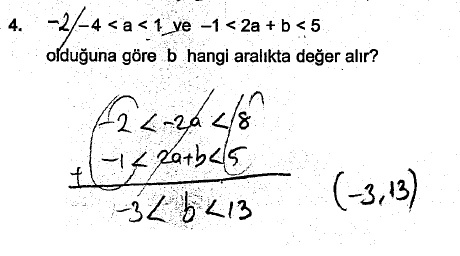 4. -2/ -4 < a < 1 ve -1 < 2a + b < 5
olduğuna göre b hangi aralıkta değer alır?
-2 < -2a < 8
+ -1 < 2a+b < 5
-3 < b < 13 (-3, 13)